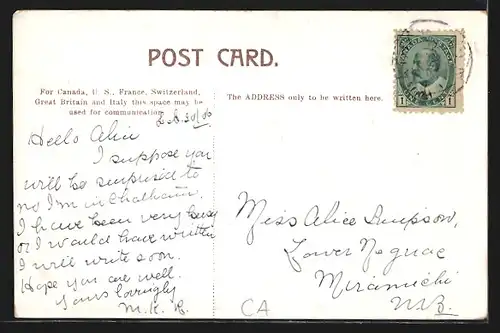 POST CARD.
For Canada, U. S., France, Switzerland,
Great Britain and Italy this space may be
used for communication.
The ADDRESS only to be written here.
CANADA POSTAGE
1 1
Hello Alice
I suppose you
will be surprised to
no I'm in Chatham.
I have been very busy
or I would have written
I will write soon.
Hope you are well.
Yours lovingly
M. K. B.
Miss Alice Simpson,
Lower Neguac
Miramichi
N.B.
CA